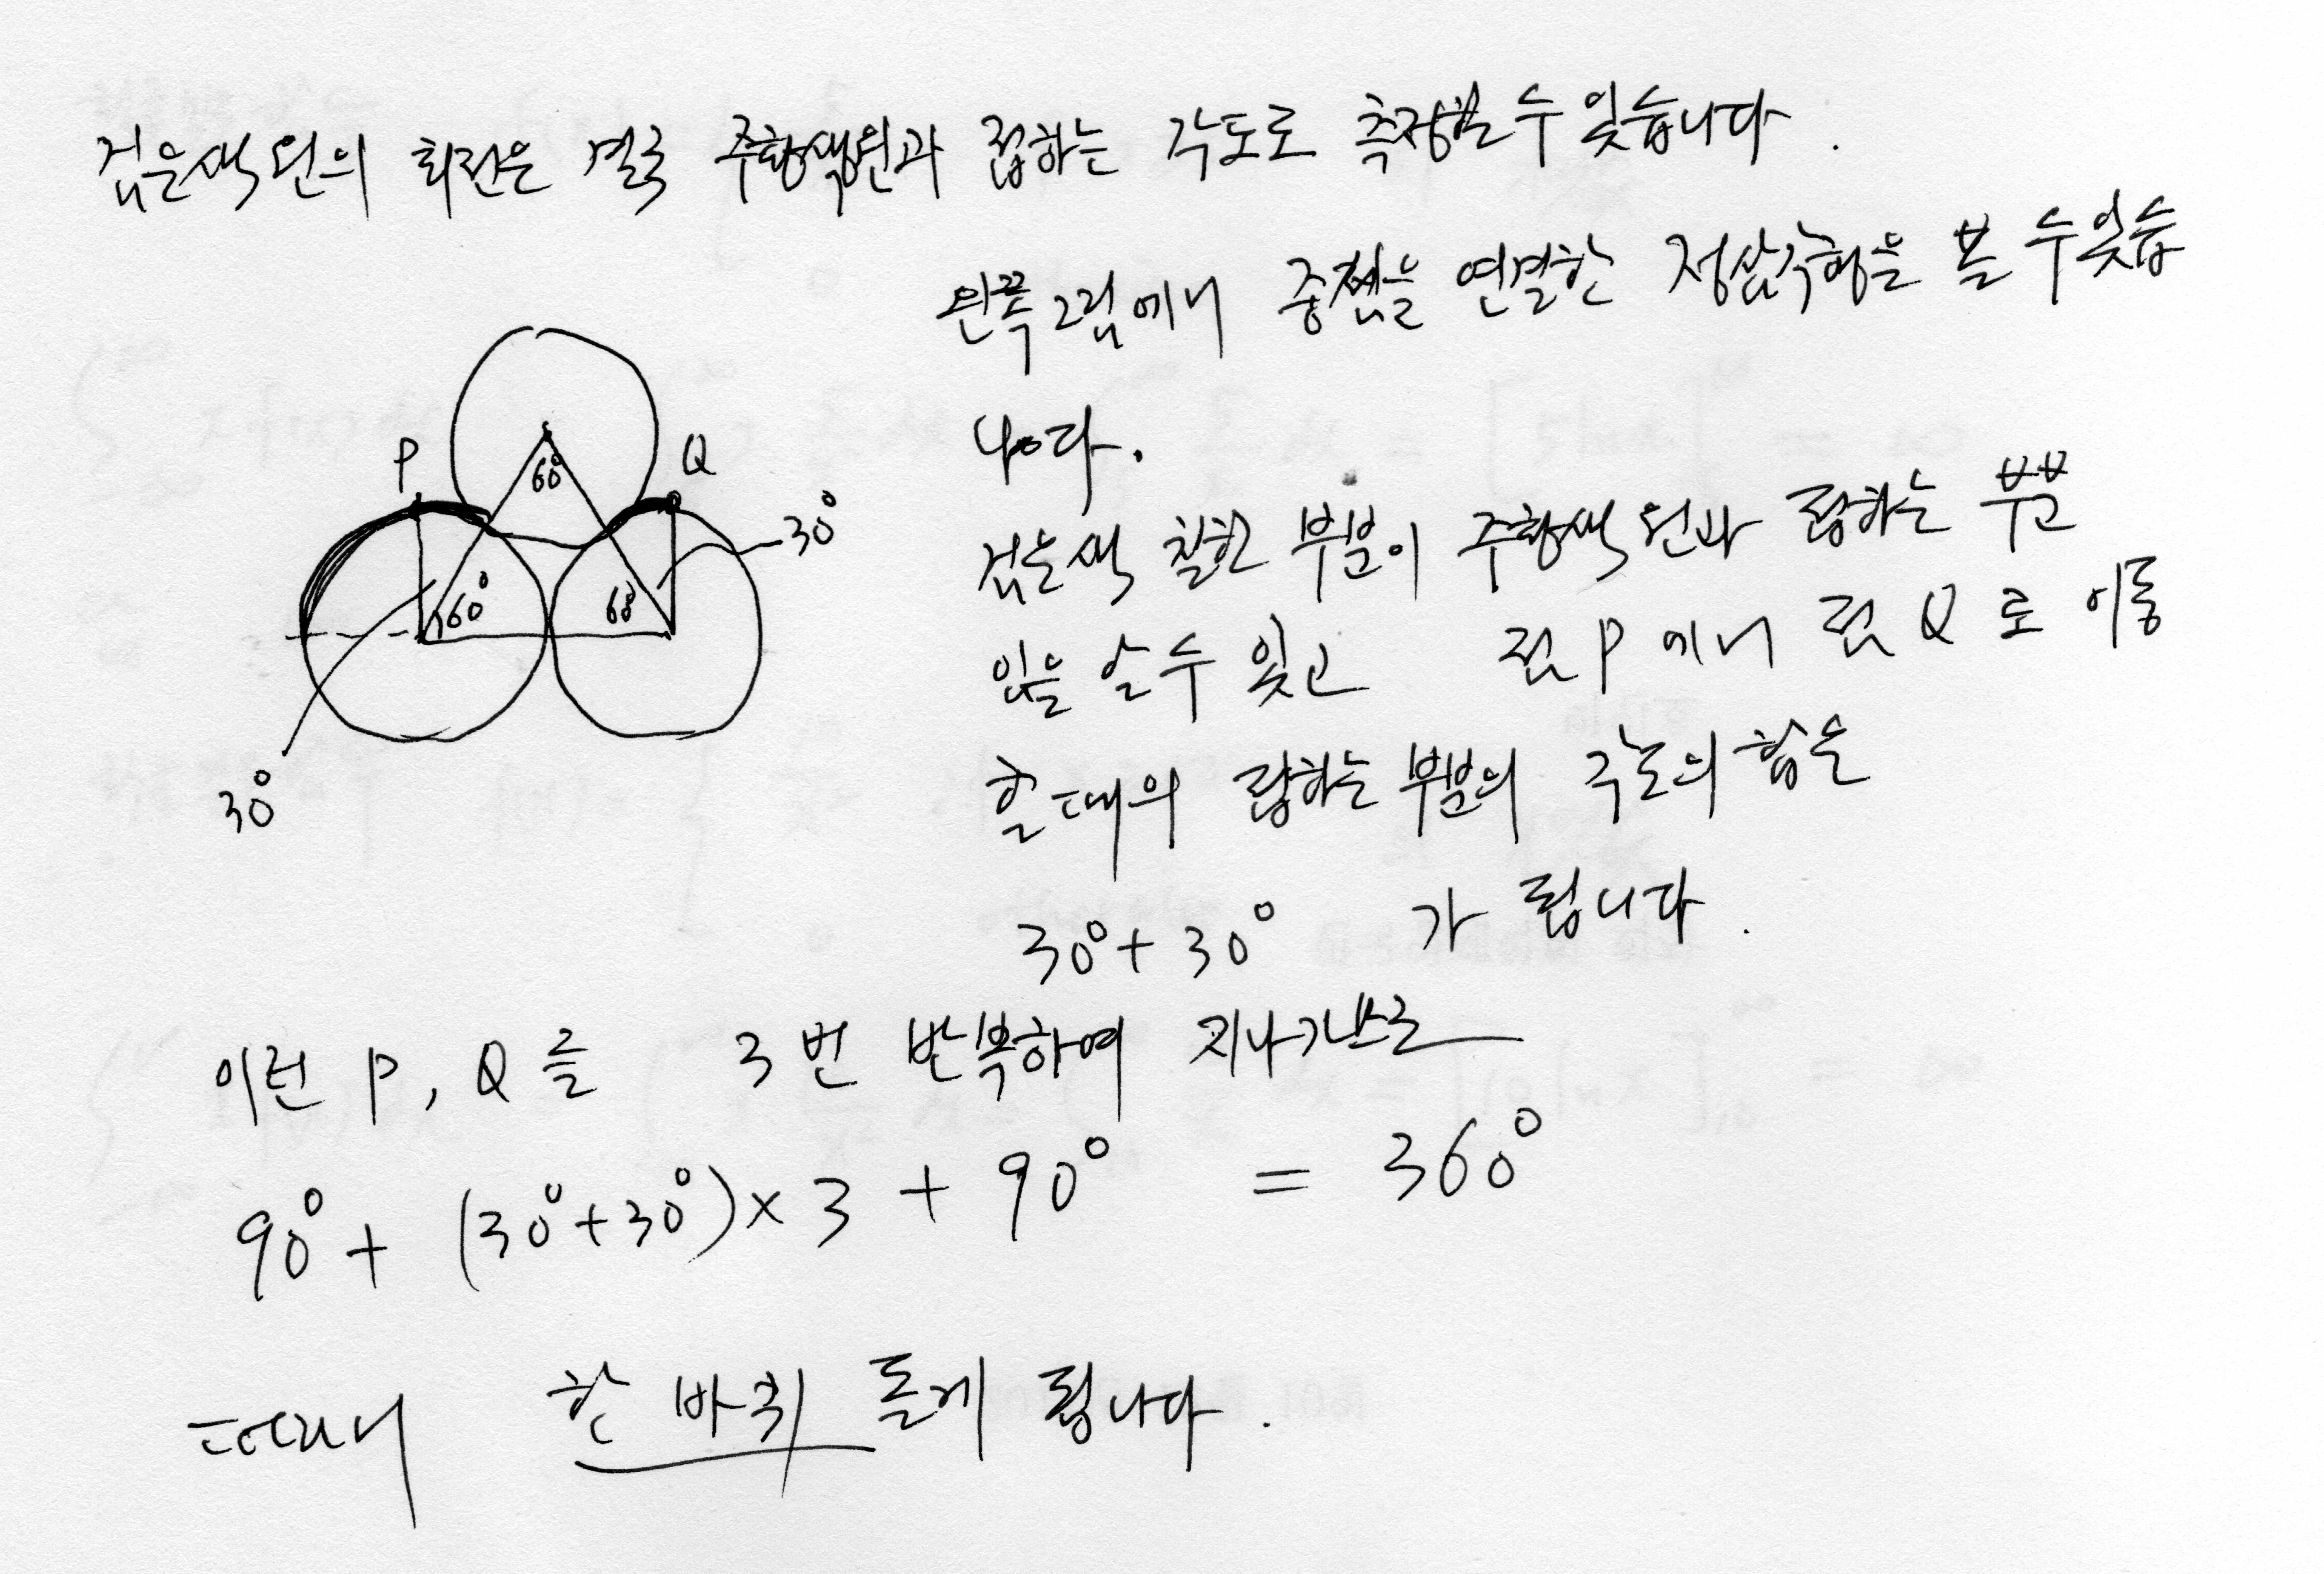 검은색 원의 회전은 결국 주황색원과 접하는 각도로 측정할 수 있습니다.
왼쪽 그림에서 중점을 연결한 정삼각형을 볼 수 있습
니다.
P
Q
60°
30°
60°
60°
30°
검은색 칠한 부분이 주황색 원과 접하는 부분
임을 알 수 있고 점 P 에서 점 Q 로 이동
할 때의 접하는 부분의 각도의 합은
30°+ 30° 가 됩니다.
이런 P, Q 를 3 번 반복하여 지나가므로
90° + (30°+30°)×3 + 90° = 360°
따라서 한 바퀴 돌게 됩니다.